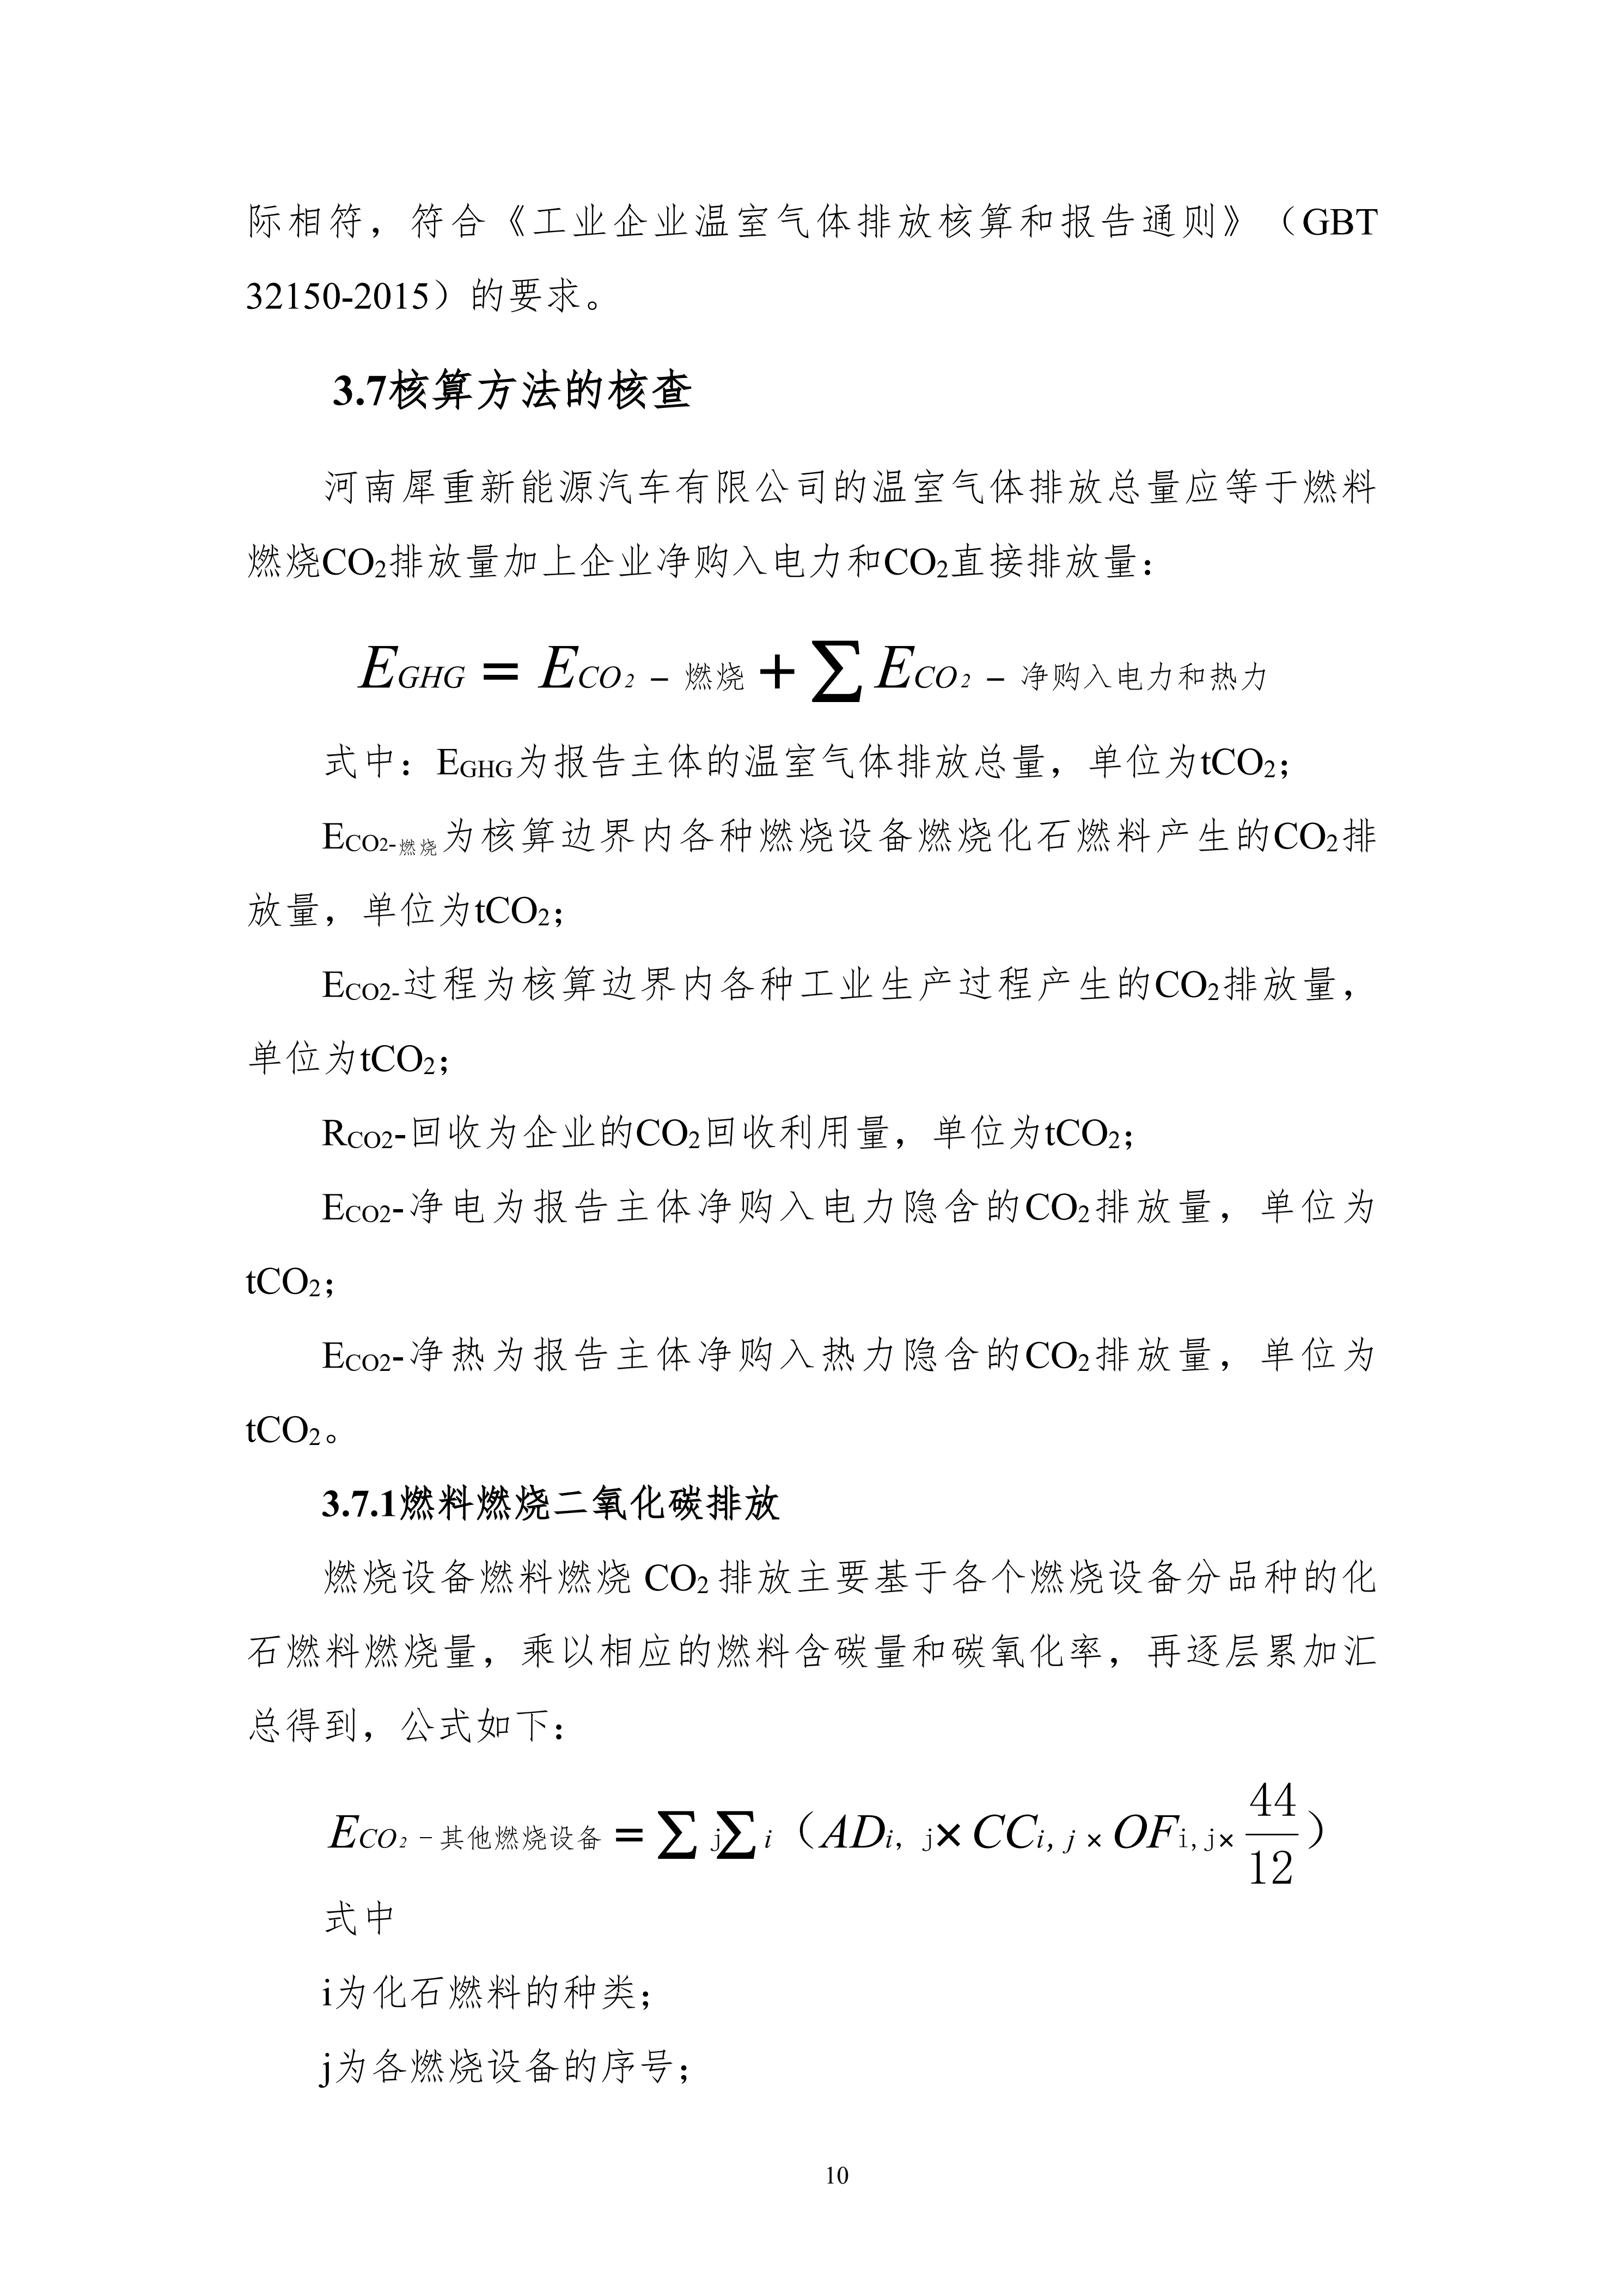 际相符，符合《工业企业温室气体排放核算和报告通则》（GBT
32150-2015）的要求。
3.7核算方法的核查
河南犀重新能源汽车有限公司的温室气体排放总量应等于燃料
燃烧CO₂排放量加上企业净购入电力和CO₂直接排放量：
E_GHG = E_CO₂－燃烧 + ∑E_CO₂－净购入电力和热力
式中：E_GHG为报告主体的温室气体排放总量，单位为tCO₂；
E_CO2-燃烧为核算边界内各种燃烧设备燃烧化石燃料产生的CO₂排
放量，单位为tCO₂；
E_CO2-过程为核算边界内各种工业生产过程产生的CO₂排放量，
单位为tCO₂；
R_CO2-回收为企业的CO₂回收利用量，单位为tCO₂；
E_CO2-净电为报告主体净购入电力隐含的CO₂排放量，单位为
tCO₂；
E_CO2-净热为报告主体净购入热力隐含的CO₂排放量，单位为
tCO₂。
3.7.1燃料燃烧二氧化碳排放
燃烧设备燃料燃烧 CO₂ 排放主要基于各个燃烧设备分品种的化
石燃料燃烧量，乘以相应的燃料含碳量和碳氧化率，再逐层累加汇
总得到，公式如下：
E_CO₂－其他燃烧设备 = ∑j∑i（ADi，j×CCi,j×OFi,j×44/12）
式中
i为化石燃料的种类；
j为各燃烧设备的序号；
10